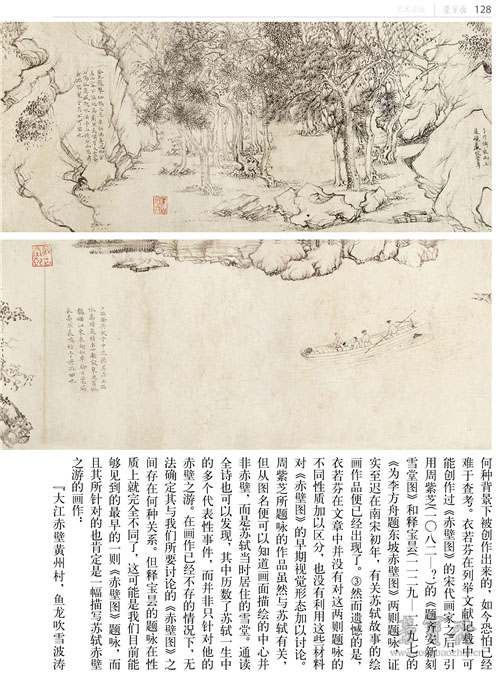 艺术论坛 荣宝斋 128
何种背景下被创作出来的，如今恐怕已经
难于查考。衣若芬在列举文献记载中可
能创作过《赤壁图》的宋代画家之后，引
用周紫芝(一〇八二—？)的《题齐安新刻
雪堂图》和释宝昙(一一二九—一一九七)的
《为李方舟题东坡赤壁图》两则题咏，证
实至迟在南宋初年，有关苏轼故事的绘
画作品便已经出现了。③然而遗憾的是，
衣若芬在文章中并没有对这两则题咏的
不同性质加以区分，也没有利用这些材料
对《赤壁图》的早期视觉形态加以讨论。
周紫芝所题咏的作品虽然与苏轼有关，
但从图名便可以知道画面描绘的中心并
非赤壁，而是苏轼当时居住的雪堂。通读
全诗也可以发现，其中历数了苏轼一生中
的多个代表性事件，而并非只针对他的
赤壁之游。在画作已经不存的情况下，无
法确定其与我们所要讨论的《赤壁图》之
间存在何种关系。但释宝昙的题咏在性
质上就完全不同了，这可能是我们目前能
够见到的最早的一则《赤壁图》题咏，而
且其所针对的也肯定是一幅描写苏轼赤壁
之游的画作：
『大江赤壁黄州村，鱼龙吹雪波涛